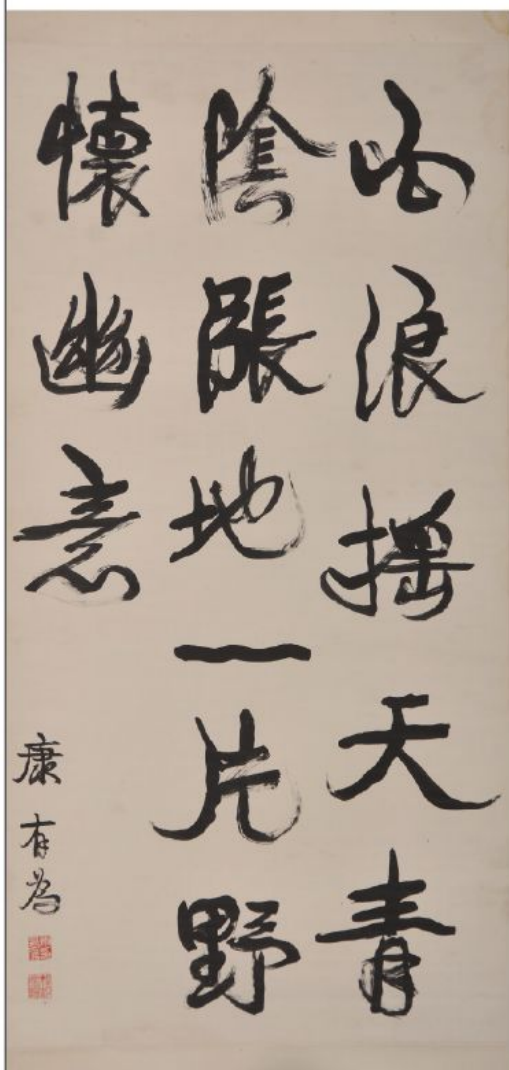 白浪搖天青
陰張地一片野
懷幽意
康有為